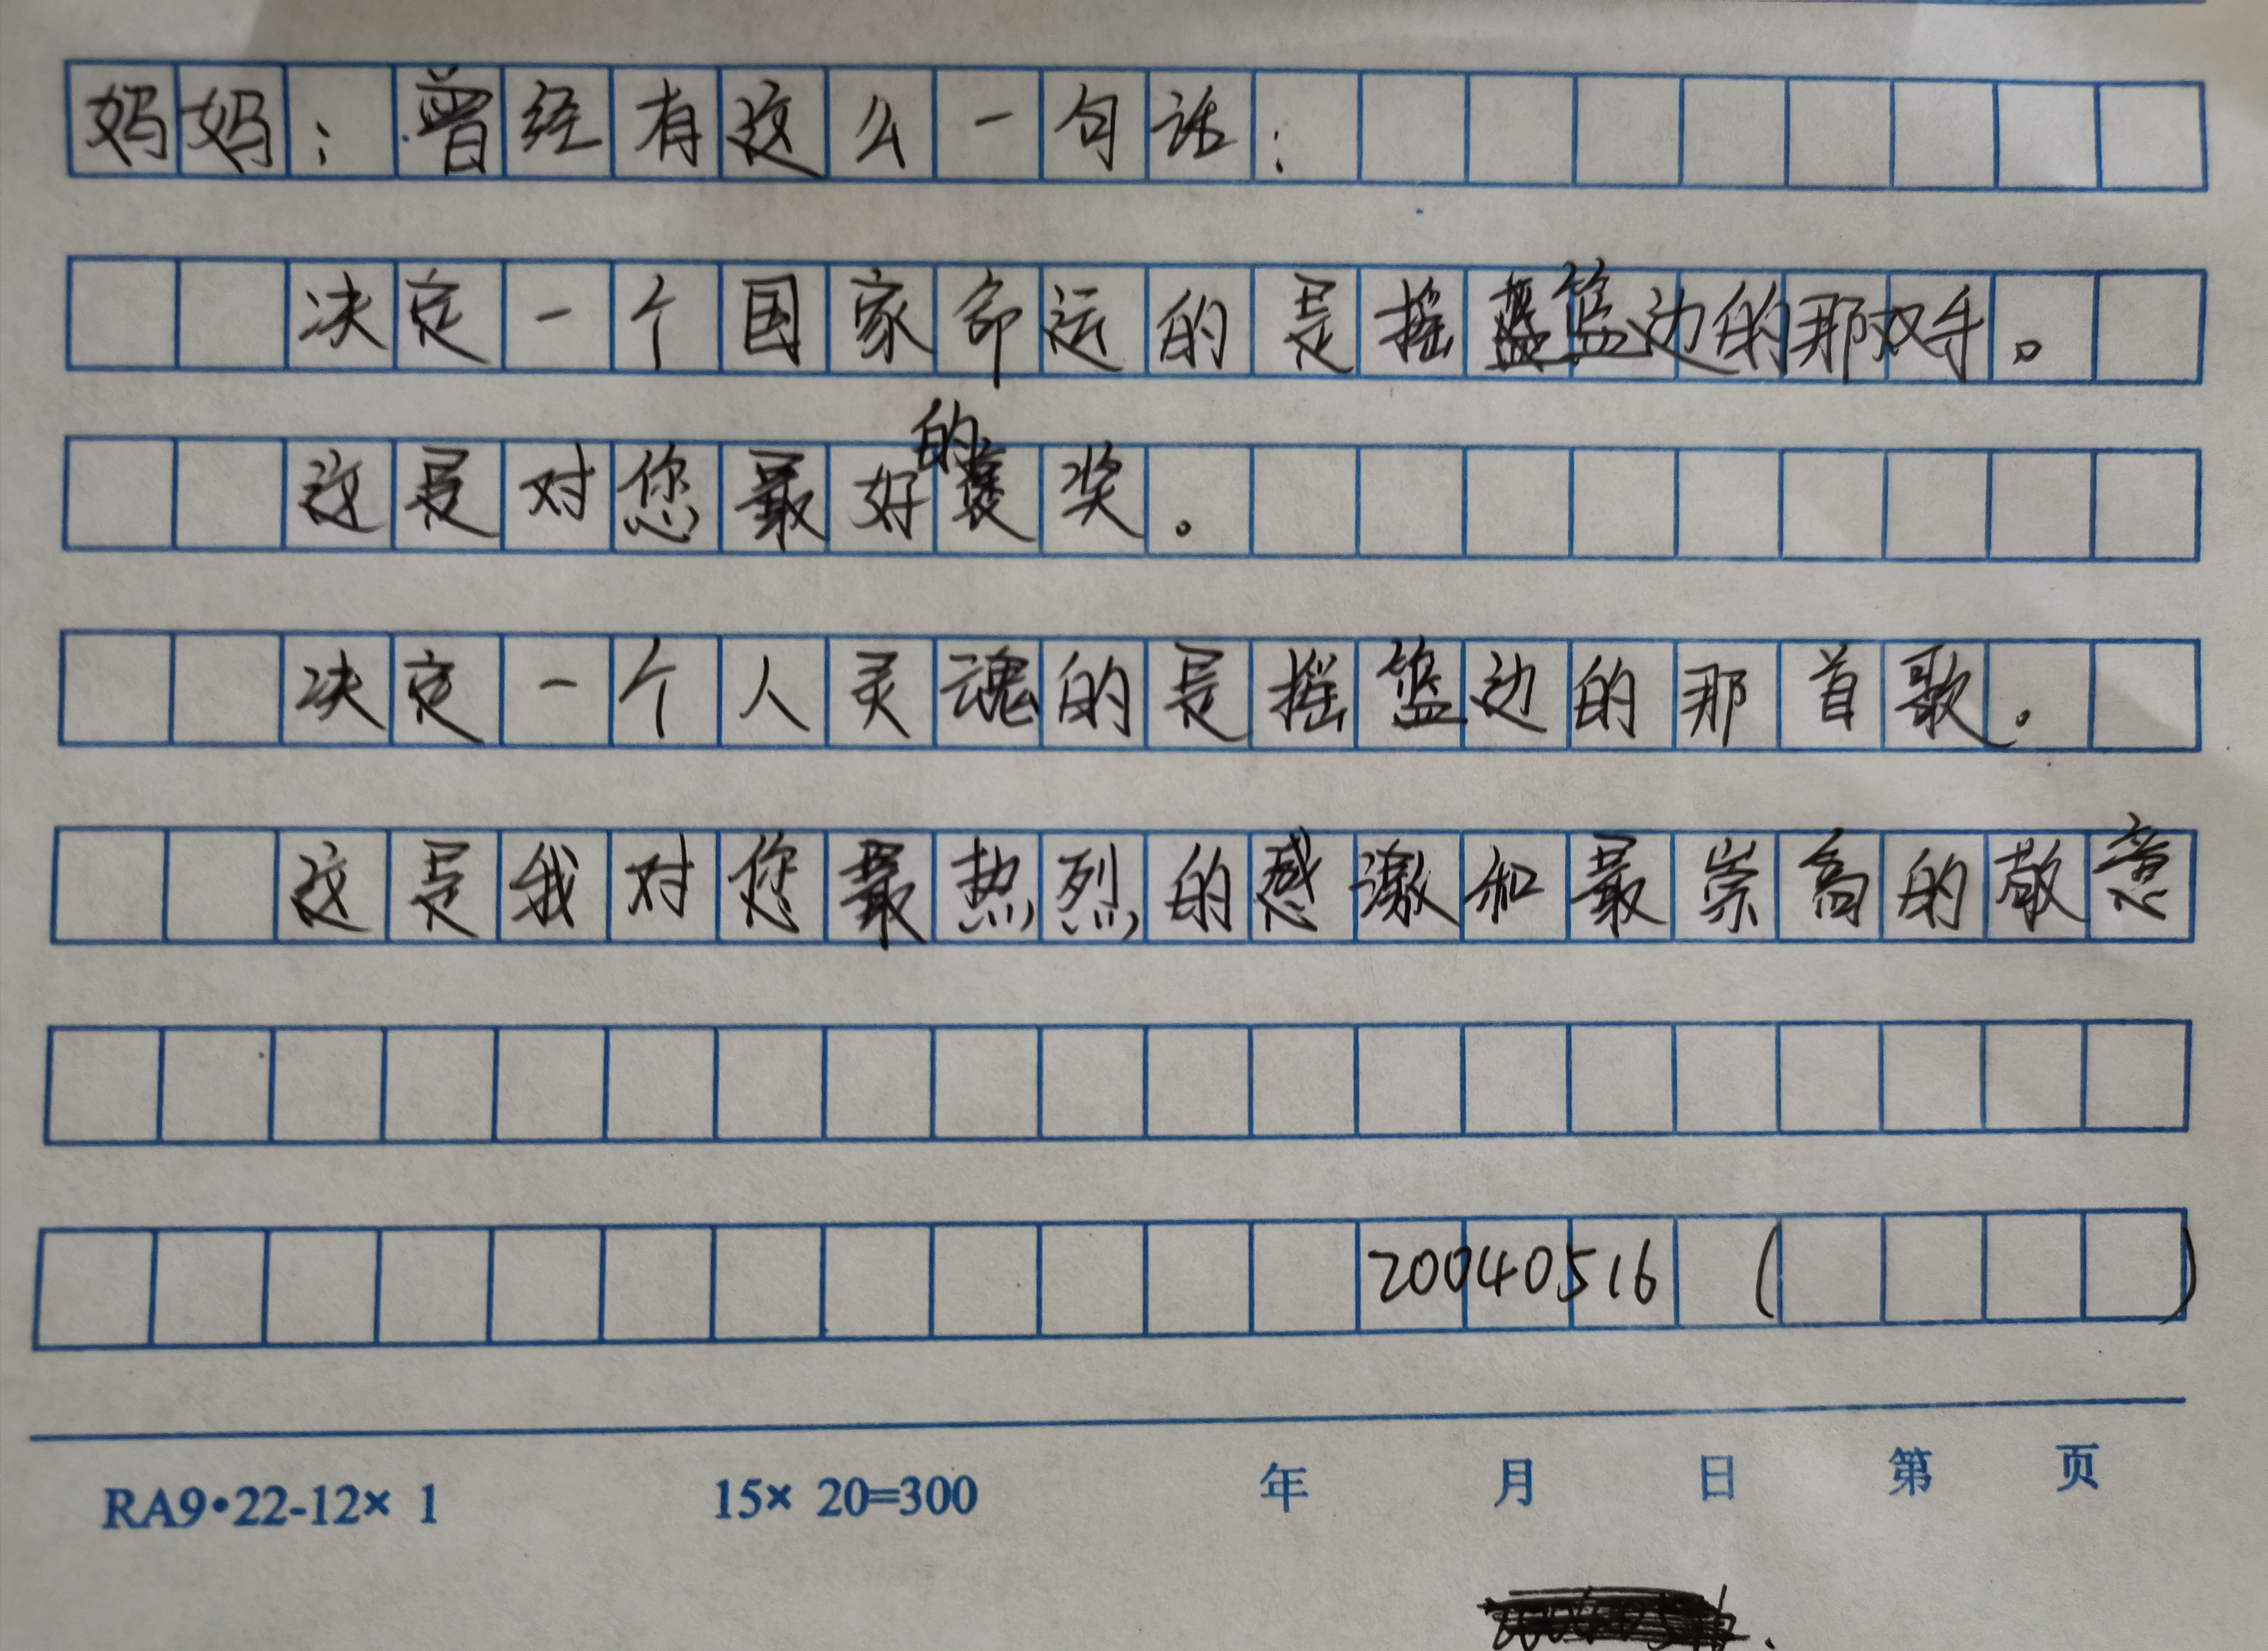 妈妈：曾经有这么一句话：
决定一个国家命运的是摇篮边的那双手。
这是对您最好的褒奖。
决定一个人灵魂的是摇篮边的那首歌.
这是我对您最热烈的感激和最崇高的敬意
20040516 (    )
RA9•22-12× 1 15× 20=300 年 月 日 第 页